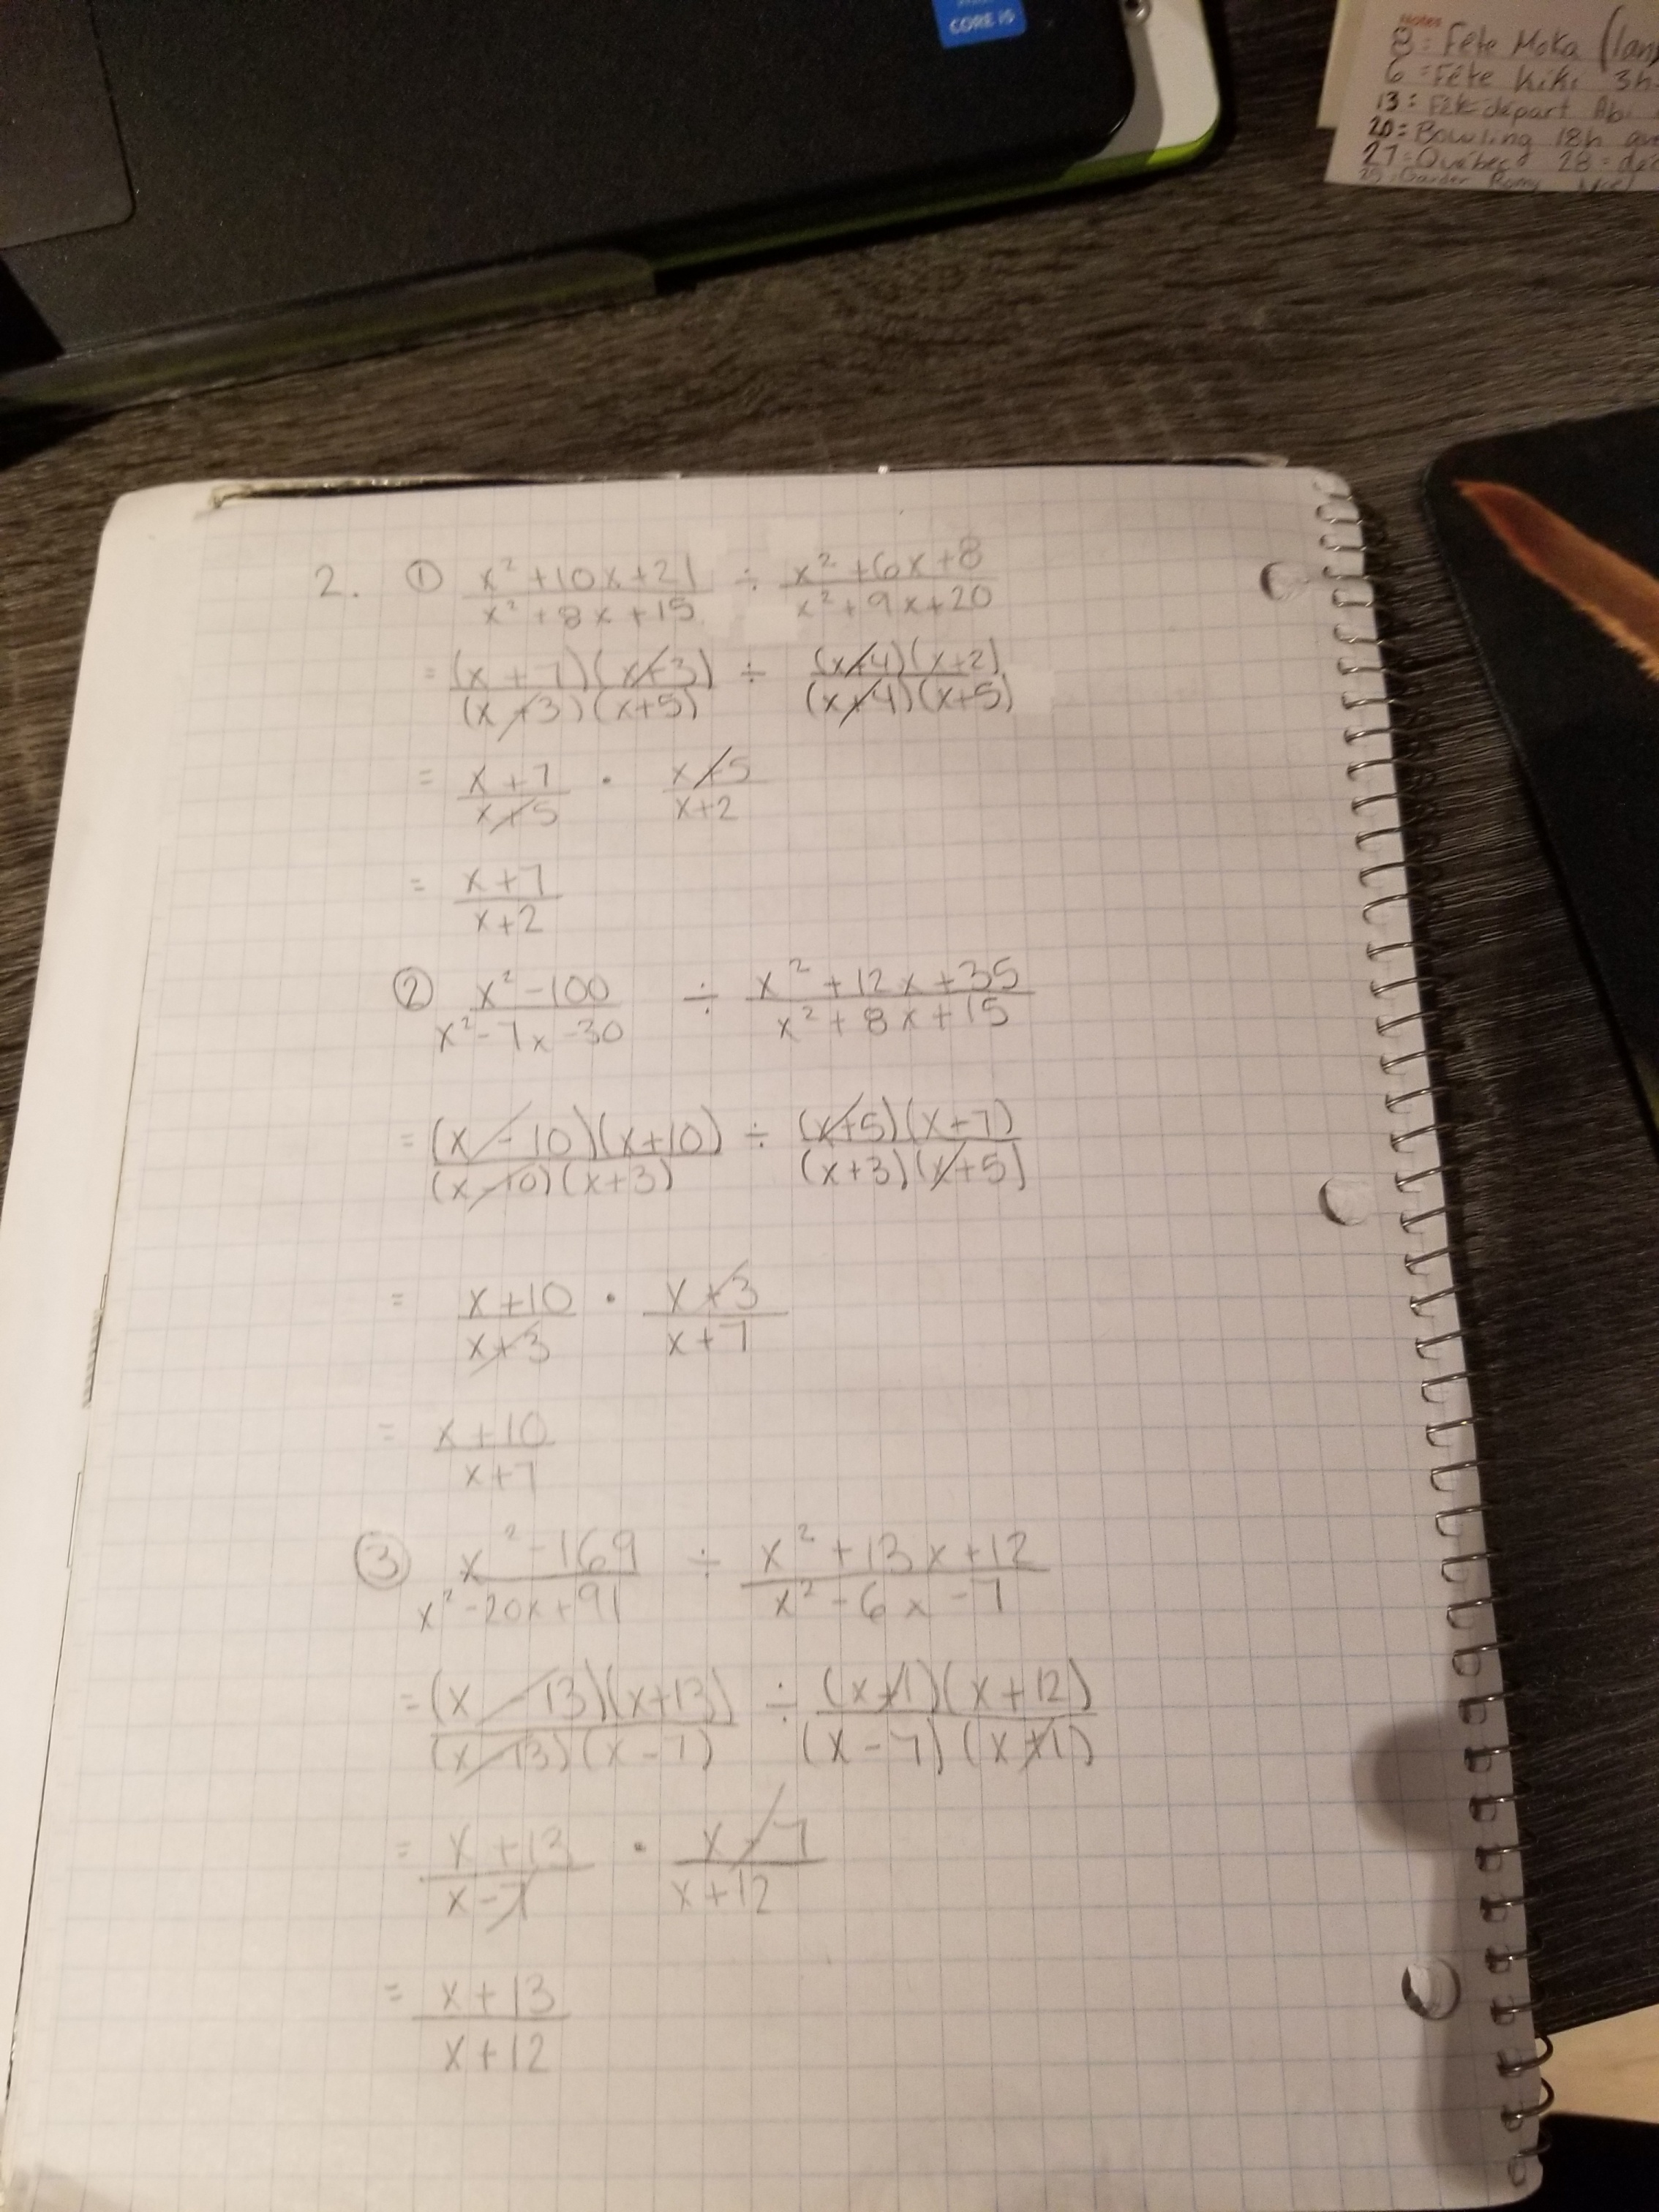 CORE i5
Notes
8 : Fête Moka (lan
6 = Fête Kiki 3h
13 : Fête départ Ab
20 = Bowling 18h av
27 = Québec 28 = dé
Garder
2. ① x² + 10x + 21 / x² + 8x + 15 ÷ x² + 6x + 8 / x² + 9x + 20
= (x + 7)(x+3) / (x+3)(x+5) ÷ (x+4)(x+2) / (x+4)(x+5)
= x + 7 / x+5 · x+5 / x+2
= x+7 / x+2
② x² - 100 / x² - 7x - 30 ÷ x² + 12x + 35 / x² + 8x + 15
= (x - 10)(x+10) / (x-10)(x+3) ÷ (x+5)(x+7) / (x+3)(x+5)
= x+10 / x+3 · x+3 / x+7
= x+10 / x+7
③ x² - 169 / x² - 20x + 91 ÷ x² + 13x + 12 / x² - 6x - 7
= (x - 13)(x+13) / (x-13)(x-7) ÷ (x+1)(x+12) / (x-7)(x+1)
= x+13 / x-7 · x-7 / x+12
= x+13 / x+12